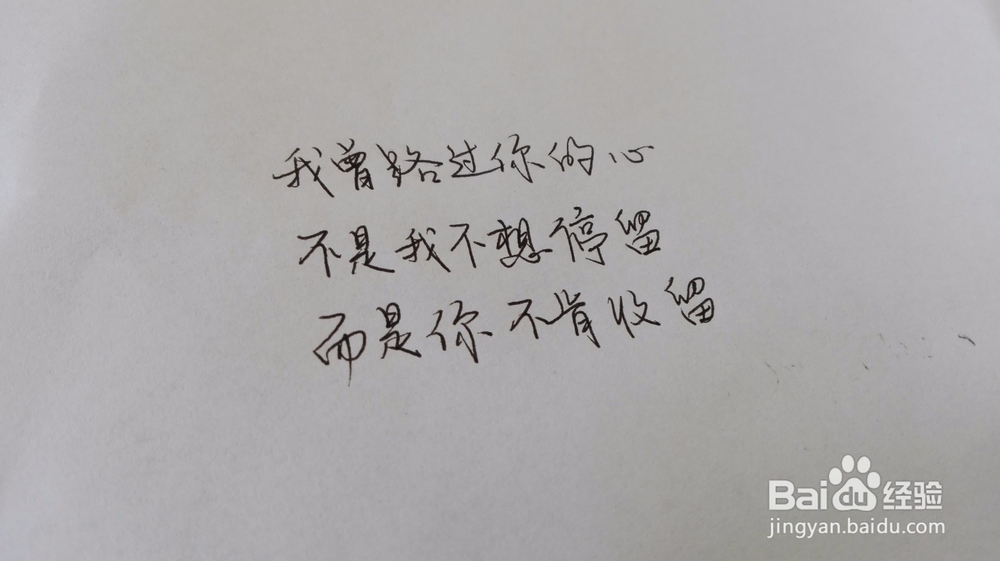 我曾路过你的心
不是我不想停留
而是你不肯收留
Baidu经验
jingyan.baidu.com